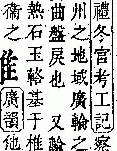 禮冬官考工記察
州之地域廣輪之
曲盤戾也 又輪
熱石玉輅基于椎
衞之
廣韻他